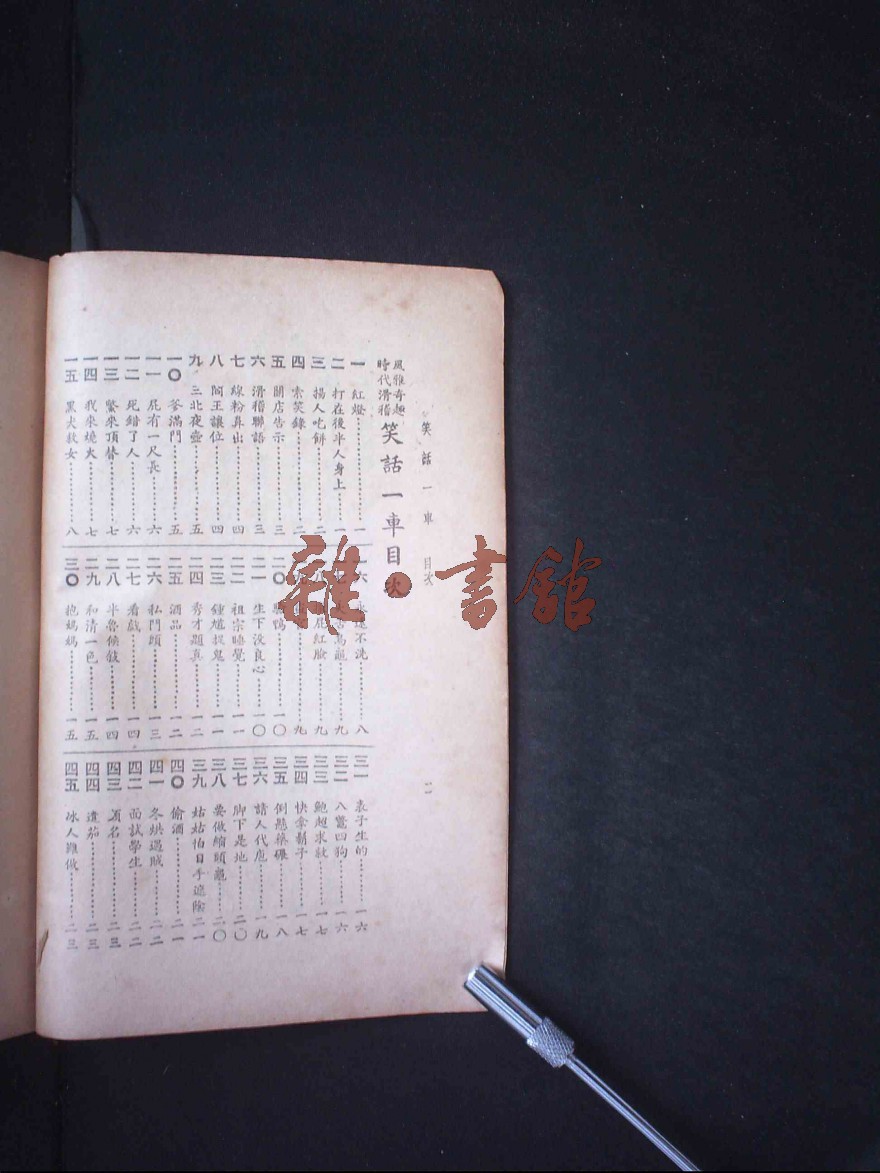 笑話一車 目次
風雅奇趣
時代滑稽
笑話一車目次
一 紅燈 一
二 打在後半人身上 一
三 揚人吃餅 二
四 索笑錄 二
五 關店告示 三
六 滑稽聯語 三
七 線粉鼻出 四
八 閻王讓位 四
九 三北夜壺 五
一〇 爹滿門 五
一一 屁有一尺長 六
一二 死錯了人 六
一三 鱉來頂替 七
一四 我來燒火 七
一五 黑犬救女 八
不洗 八
烏龜 九
紅臉 九
九
二〇 鴨 一〇
二一 生下沒良心 一〇
二二 祖宗睡覺 一一
二三 鍾馗捉鬼 一一
二四 秀才題真 一二
二五 酒品 一二
二六 私門頭 一三
二七 看戲 一四
二八 半魯候餃 一四
二九 和清一色 一五
三〇 抱媽媽 一五
三一 表子生的 一六
三二 八鱉四狗 一六
三三 鮑超求救 一七
三四 快拿鬍子 一七
三五 倒懸藥碾 一八
三六 請人代庖 一九
三七 脚下是地 二〇
三八 要做縮頭龜 二〇
三九 姑姑怕日手遮陰 二一
四〇 偷酒 二一
四一 冬烘遇賊 二二
四二 面試學生 二二
四三 名 二三
四四 遺茄 二三
四五 冰人難做 二三
雜·書館